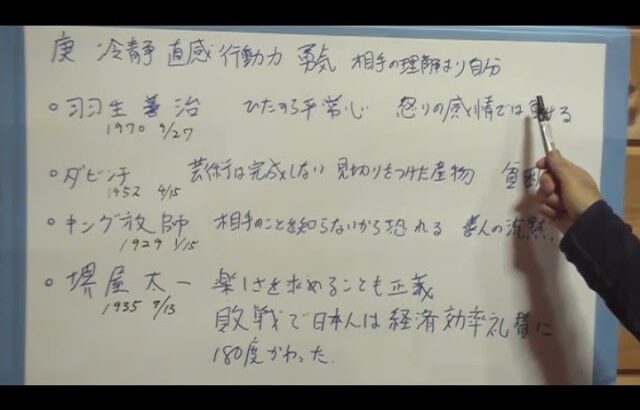 庚 冷静 直感 行動力 勇気 相手の理解より自分
○羽生善治 ひたすら平常心 怒りの感情では負ける
1970 9/27
○ダビンチ 芸術は完成しない 見切りをつけた産物
1452 4/15
○キング牧師 相手のことを知らないから恐れる 善人の沈黙
1929 1/15
○堺屋太一 楽しさを求めることも正義
1935 7/13
敗戦で日本人は経済効率礼賛に
180度かわった.